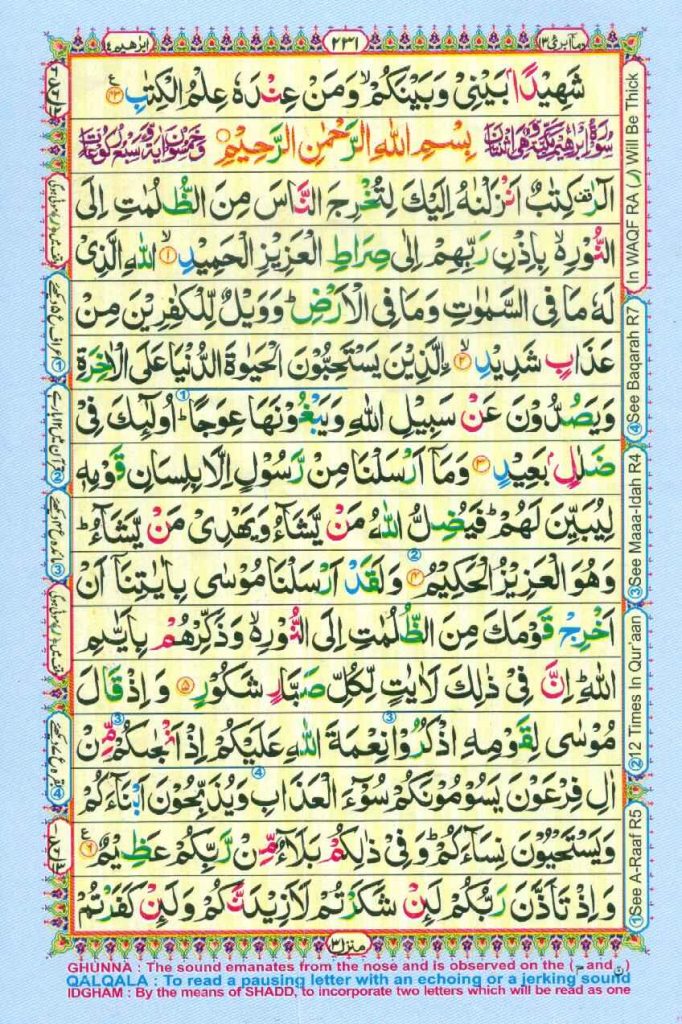 وما ابرئ ١٣
٢٣١
ابرٰهيم ١٤
شَهِيْدًۢا بَيْنِىْ وَبَيْنَكُمْ ۙ وَمَنْ عِنْدَهٗ عِلْمُ الْكِتٰبِ ٤٣
سُوْرَةُ اِبْرٰهِيْمَ مَكِّيَّةٌ وَّهِىَ اثْنَتَانِ بِسْمِ اللّٰهِ الرَّحْمٰنِ الرَّحِيْمِ وَخَمْسُوْنَ اٰيَةً وَّسَبْعُ رُكُوْعَاتٍ
الٓرٰ ۚ كِتٰبٌ اَنْزَلْنٰهُ اِلَيْكَ لِتُخْرِجَ النَّاسَ مِنَ الظُّلُمٰتِ اِلَى
النُّوْرِ ۙ بِاِذْنِ رَبِّهِمْ اِلٰى صِرَاطِ الْعَزِيْزِ الْحَمِيْدِ ۙ ١ اللّٰهِ الَّذِىْ
لَهٗ مَا فِى السَّمٰوٰتِ وَمَا فِى الْاَرْضِ ؕ وَوَيْلٌ لِّلْكٰفِرِيْنَ مِنْ
عَذَابٍ شَدِيْدِ ۙ ٢ اِ۟لَّذِيْنَ يَسْتَحِبُّوْنَ الْحَيٰوةَ الدُّنْيَا عَلَى الْاٰخِرَةِ
وَيَصُدُّوْنَ عَنْ سَبِيْلِ اللّٰهِ وَيَبْغُوْنَهَا عِوَجًا ؕ اُولٰٓئِكَ فِىْ
ضَلٰلٍۢ بَعِيْدٍ ٣ وَمَاۤ اَرْسَلْنَا مِنْ رَّسُوْلٍ اِلَّا بِلِسَانِ قَوْمِهٖ
لِيُبَيِّنَ لَهُمْ ؕ فَيُضِلُّ اللّٰهُ مَنْ يَّشَآءُ وَيَهْدِىْ مَنْ يَّشَآءُ ؕ
وَهُوَ الْعَزِيْزُ الْحَكِيْمُ ٤ وَلَقَدْ اَرْسَلْنَا مُوْسٰى بِاٰيٰتِنَاۤ اَنْ
اَخْرِجْ قَوْمَكَ مِنَ الظُّلُمٰتِ اِلَى النُّوْرِ ۙ وَذَكِّرْهُمْ بِاَيّٰىمِ
اللّٰهِ ؕ اِنَّ فِىْ ذٰلِكَ لَاٰيٰتٍ لِّكُلِّ صَبَّارٍ شَكُوْرٍ ٥ وَاِذْ قَالَ
مُوْسٰى لِقَوْمِهِ اذْكُرُوْا نِعْمَةَ اللّٰهِ عَلَيْكُمْ اِذْ اَنْجٰىكُمْ مِّنْ
اٰلِ فِرْعَوْنَ يَسُوْمُوْنَكُمْ سُوْٓءَ الْعَذَابِ وَيُذَبِّحُوْنَ اَبْنَآءَكُمْ
وَيَسْتَحْيُوْنَ نِسَآءَكُمْ ؕ وَفِىْ ذٰلِكُمْ بَلَآءٌ مِّنْ رَّبِّكُمْ عَظِيْمٌ ٦
وَاِذْ تَاَذَّنَ رَبُّكُمْ لَئِنْ شَكَرْتُمْ لَاَزِيْدَنَّكُمْ وَلَئِنْ كَفَرْتُمْ
In WAQF RA (ر) Will Be Thick
④See Baqarah R7
③See Maaa-Idah R4
②12 Times In Qur'aan
①See A-Raaf R5
منزل ٣
GHUNNA : The sound emanates from the nose and is observed on the
QALQALA : To read a pausing letter with an echoing or a jerking sound
IDGHAM : By the means of SHADD, to incorporate two letters which will be read as one